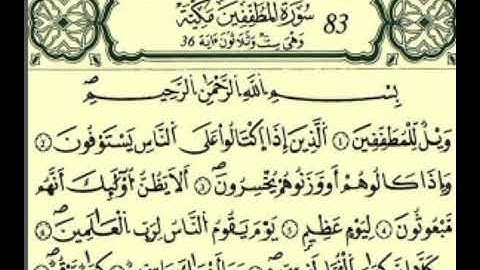 سُورَةُ الْمُطَفِّفِينَ مَكِّيَّة 83
وَهْيَ سِتٌّ وَثَلَاثُونَ ءَايَة 36
بِسْمِ اللَّهِ الرَّحْمَٰنِ الرَّحِيمِ
وَيْلٌ لِّلْمُطَفِّفِينَ 1 اَلَّذِينَ إِذَا اَكْتَالُواْ عَلَى اَلنَّاسِ يَسْتَوْفُونَ 2
وَإِذَا كَالُوهُمْ أَو وَّزَنُوهُمْ يُخْسِرُونَ 3 أَلَا يَظُنُّ أُوْلَٰئِكَ أَنَّهُم
مَّبْعُوثُونَ 4 لِيَوْمٍ عَظِيمٍ 5 يَوْمَ يَقُومُ اَلنَّاسُ لِرَبِّ اِلْعَٰلَمِينَ 6